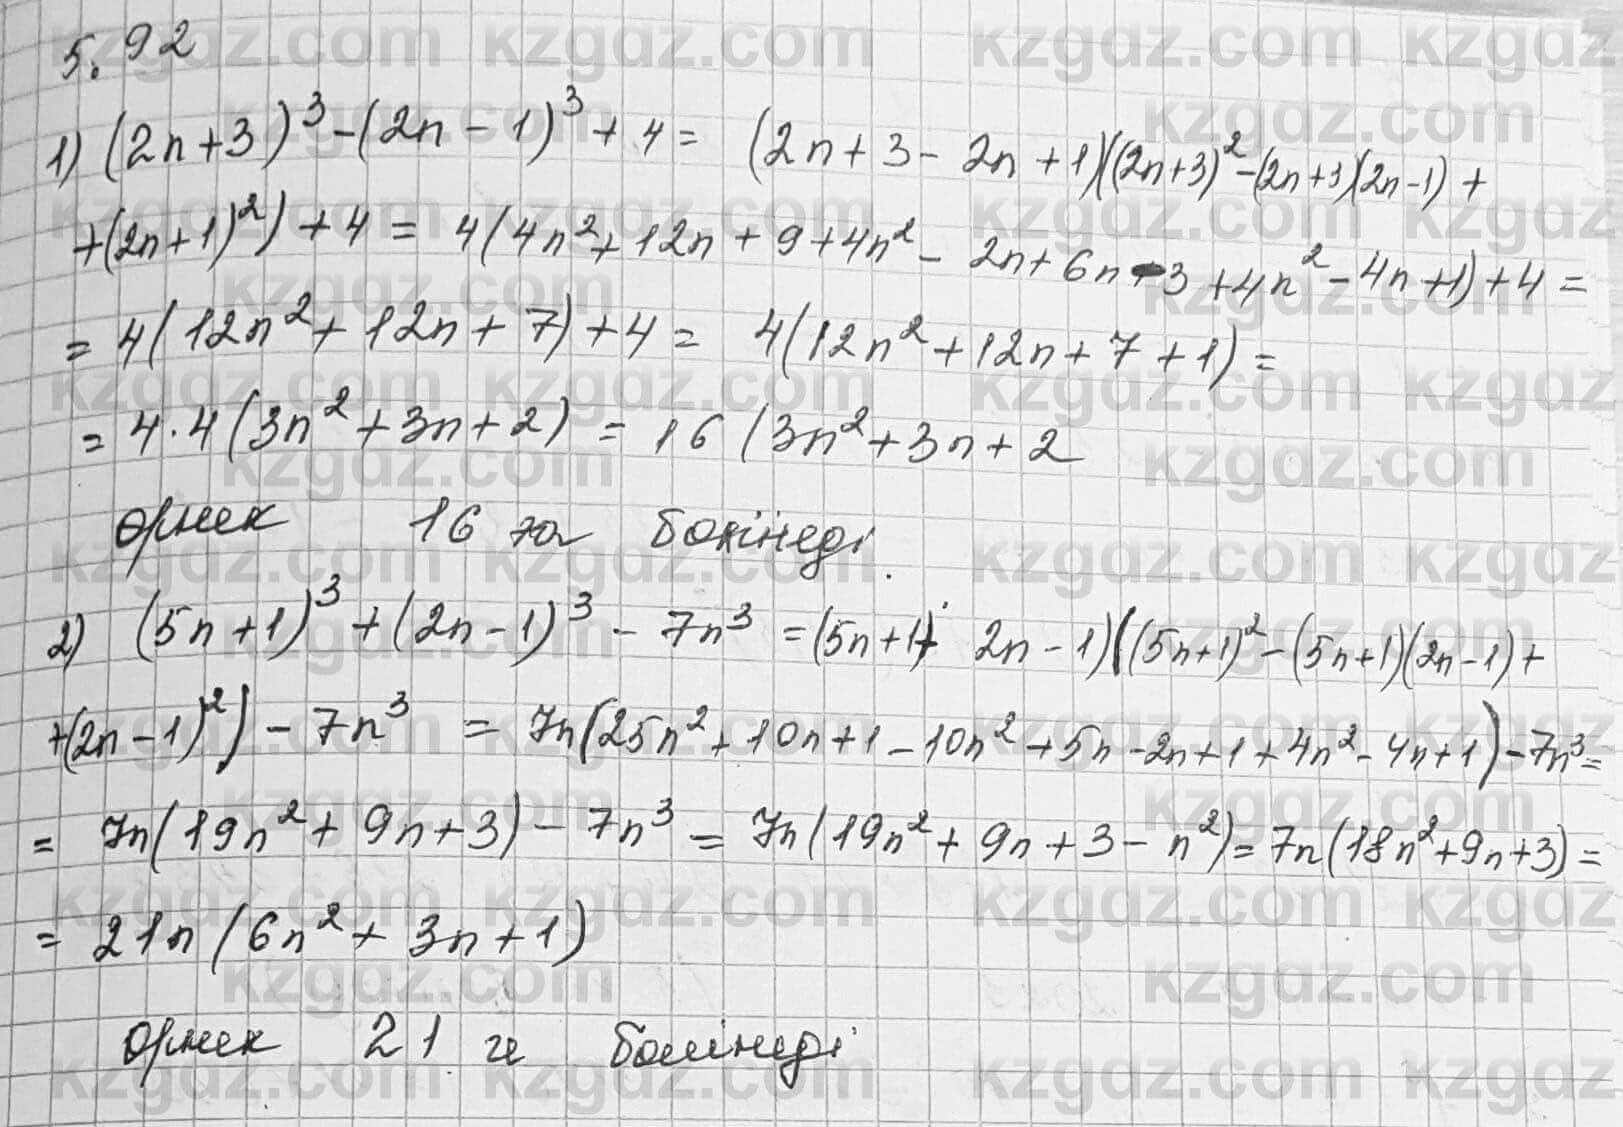 5.92
1) (2n+3)³-(2n-1)³+4= (2n+3-2n+1)((2n+3)²-(2n+3)(2n-1)+
+(2n+1)²)+4= 4(4n²+12n+9+4n²-2n+6n-3+4n²-4n+1)+4=
=4(12n²+12n+7)+4= 4(12n²+12n+7+1)=
=4·4(3n²+3n+2)=16(3n²+3n+2
өрнек 16 ға бөлінеді.
2) (5n+1)³+(2n-1)³-7n³=(5n+1+2n-1)((5n+1)²-(5n+1)(2n-1)+
+(2n-1)²)-7n³ =7n(25n²+10n+1-10n²+5n-2n+1+4n²-4n+1)-7n³=
= 7n(19n²+9n+3)-7n³=7n(19n²+9n+3-n²)=7n(18n²+9n+3)=
= 21n(6n²+3n+1)
өрнек 21 ге бөлінеді
kzgdz.com